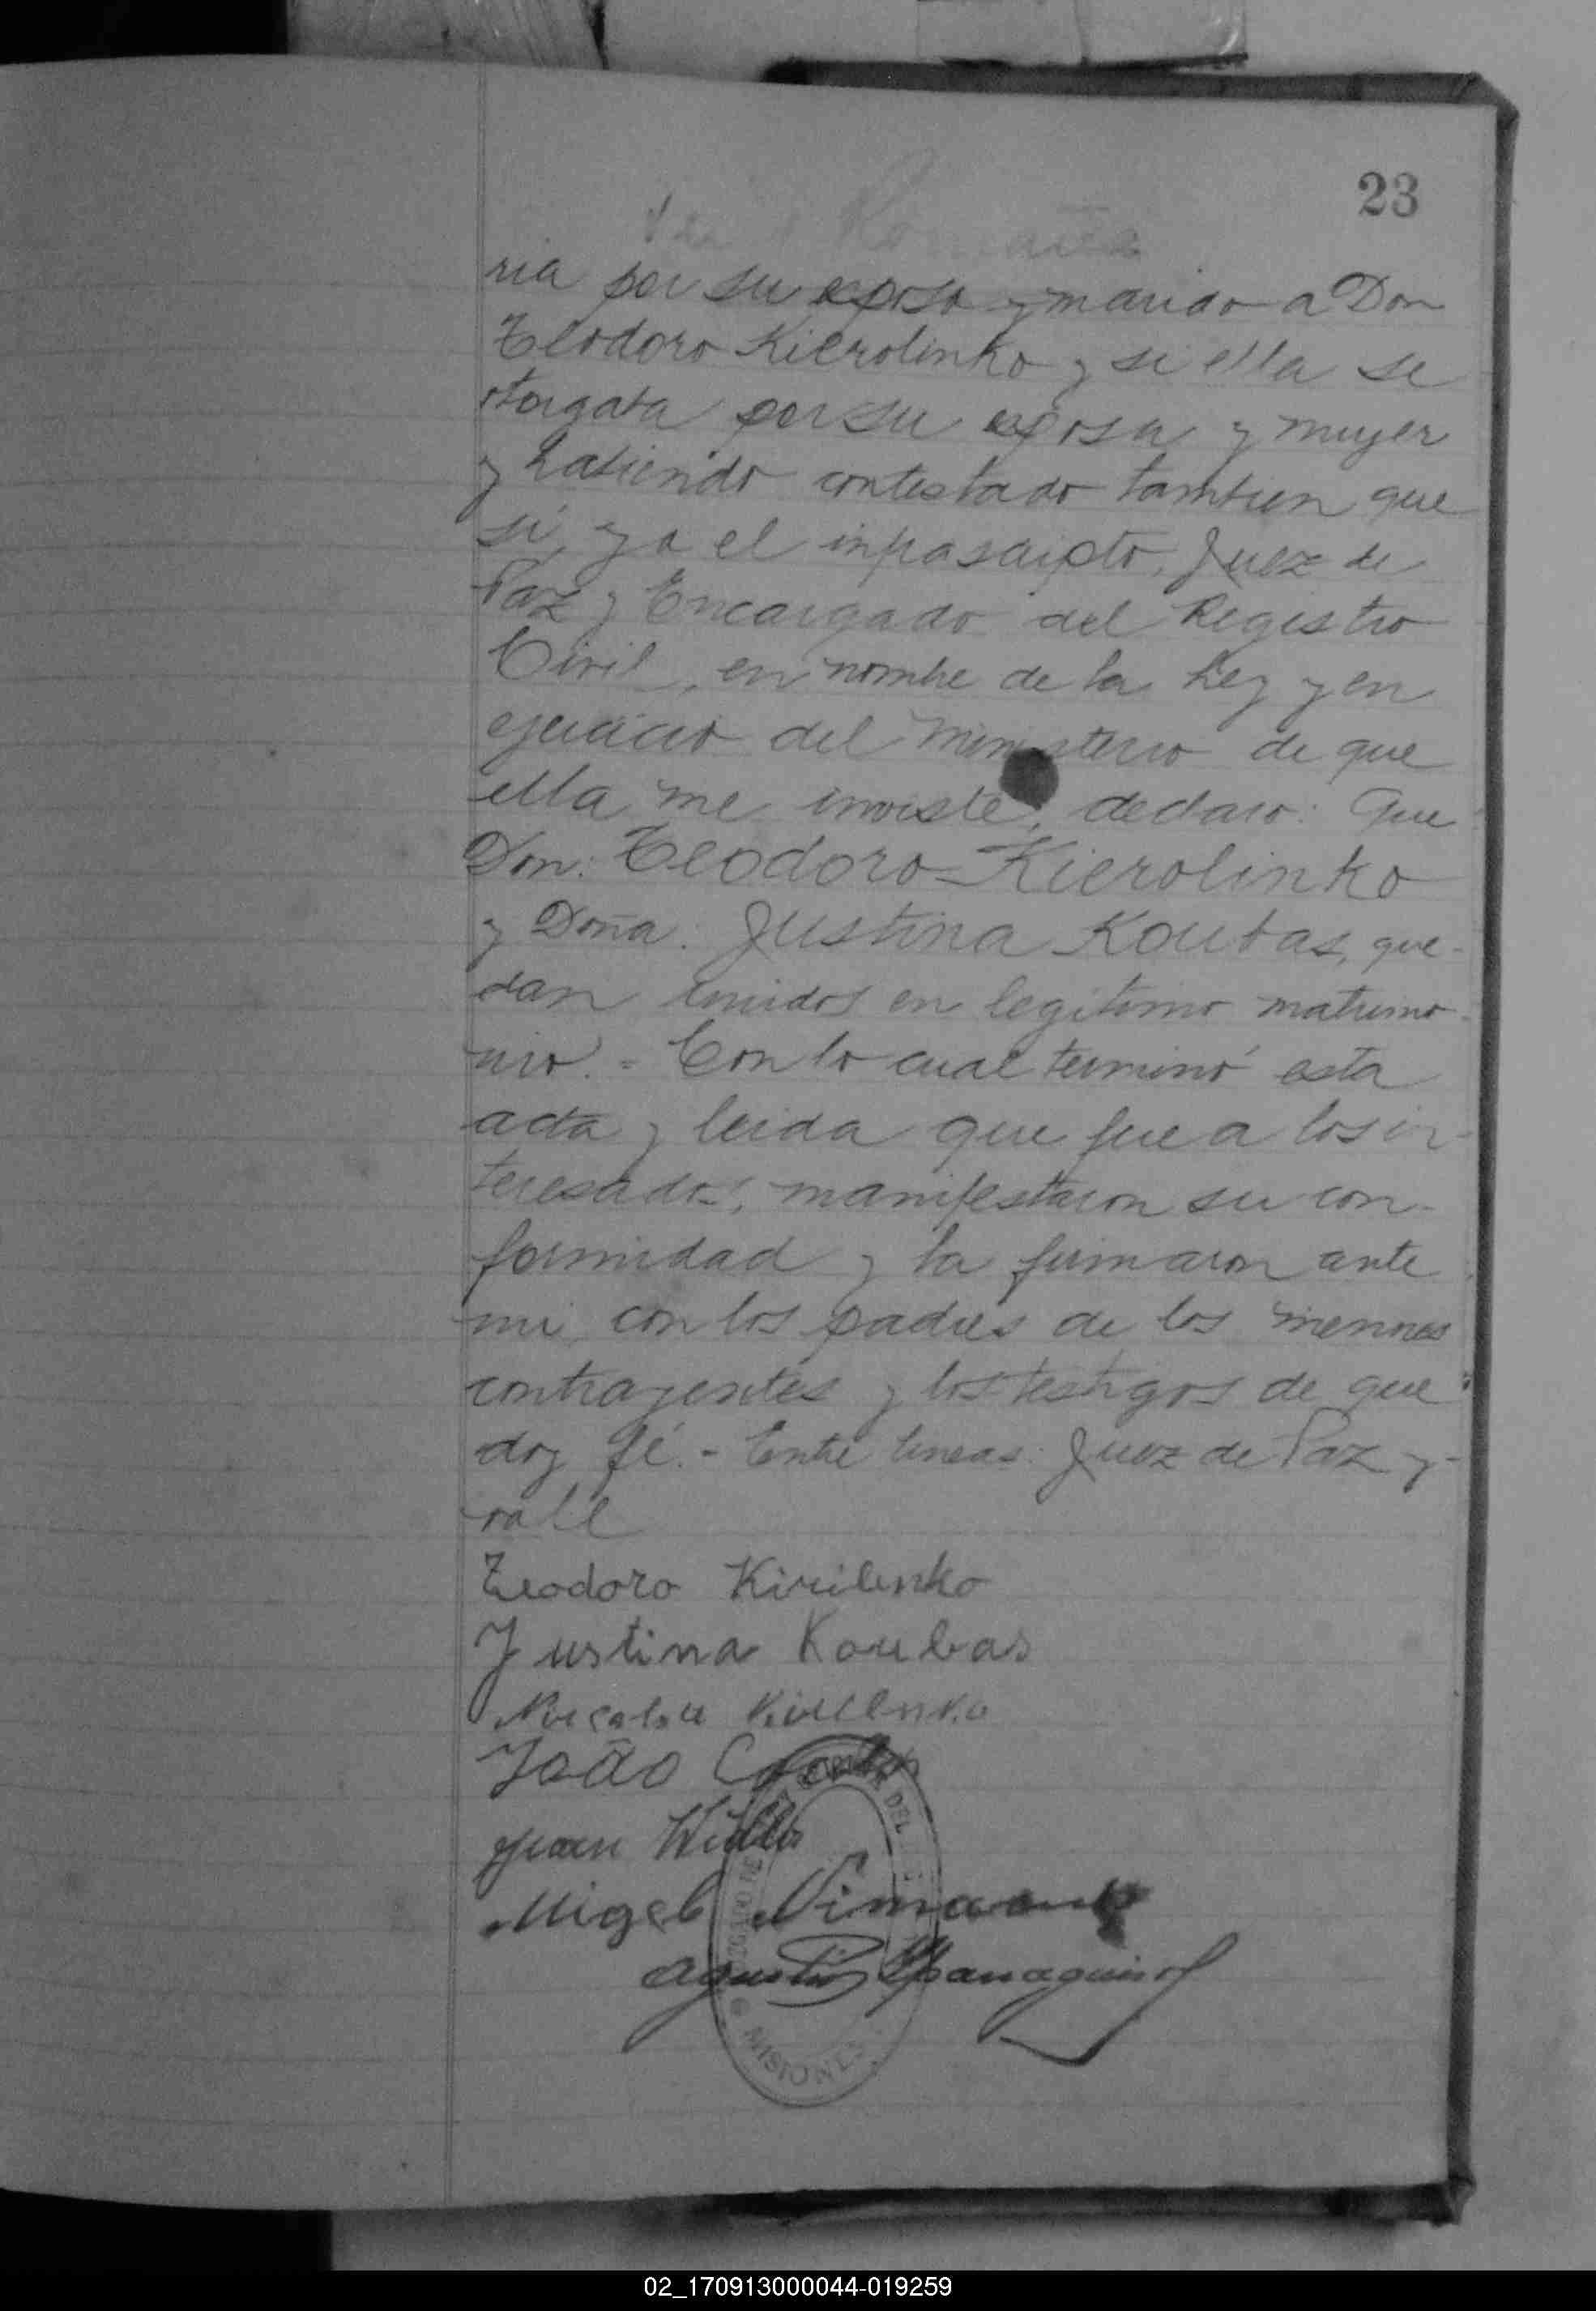 23
ria por su esposo y marido a Don
Teodoro Kierolinko y si ella se
otorgaba por su esposa y mujer
y habiendo contestado tambien que
si, yo el infrascripto, Juez de
Paz y Encargado del Registro
Civil, en nombre de la Ley y en
ejercicio del ministerio de que
ella me inviste, declaro: Que
Don: Teodoro Kierolinko
y Doña: Justina Koubas, que-
dan unidos en legitimo matrimo-
nio. = Con lo cual terminó esta
acta y leida que fue a los in-
teresados, manifestaron su con-
formidad y la firmaron ante
mi con los padres de los menores
contrayentes y los testigos de que
doy fé. - Entre lineas: Juez de Paz y -
vale
Teodoro Kirilenko
Justina Koubas
Kirilenko
João
Juan
Migel
Agustin
DEL
MISIONES
02_170913000044-019259